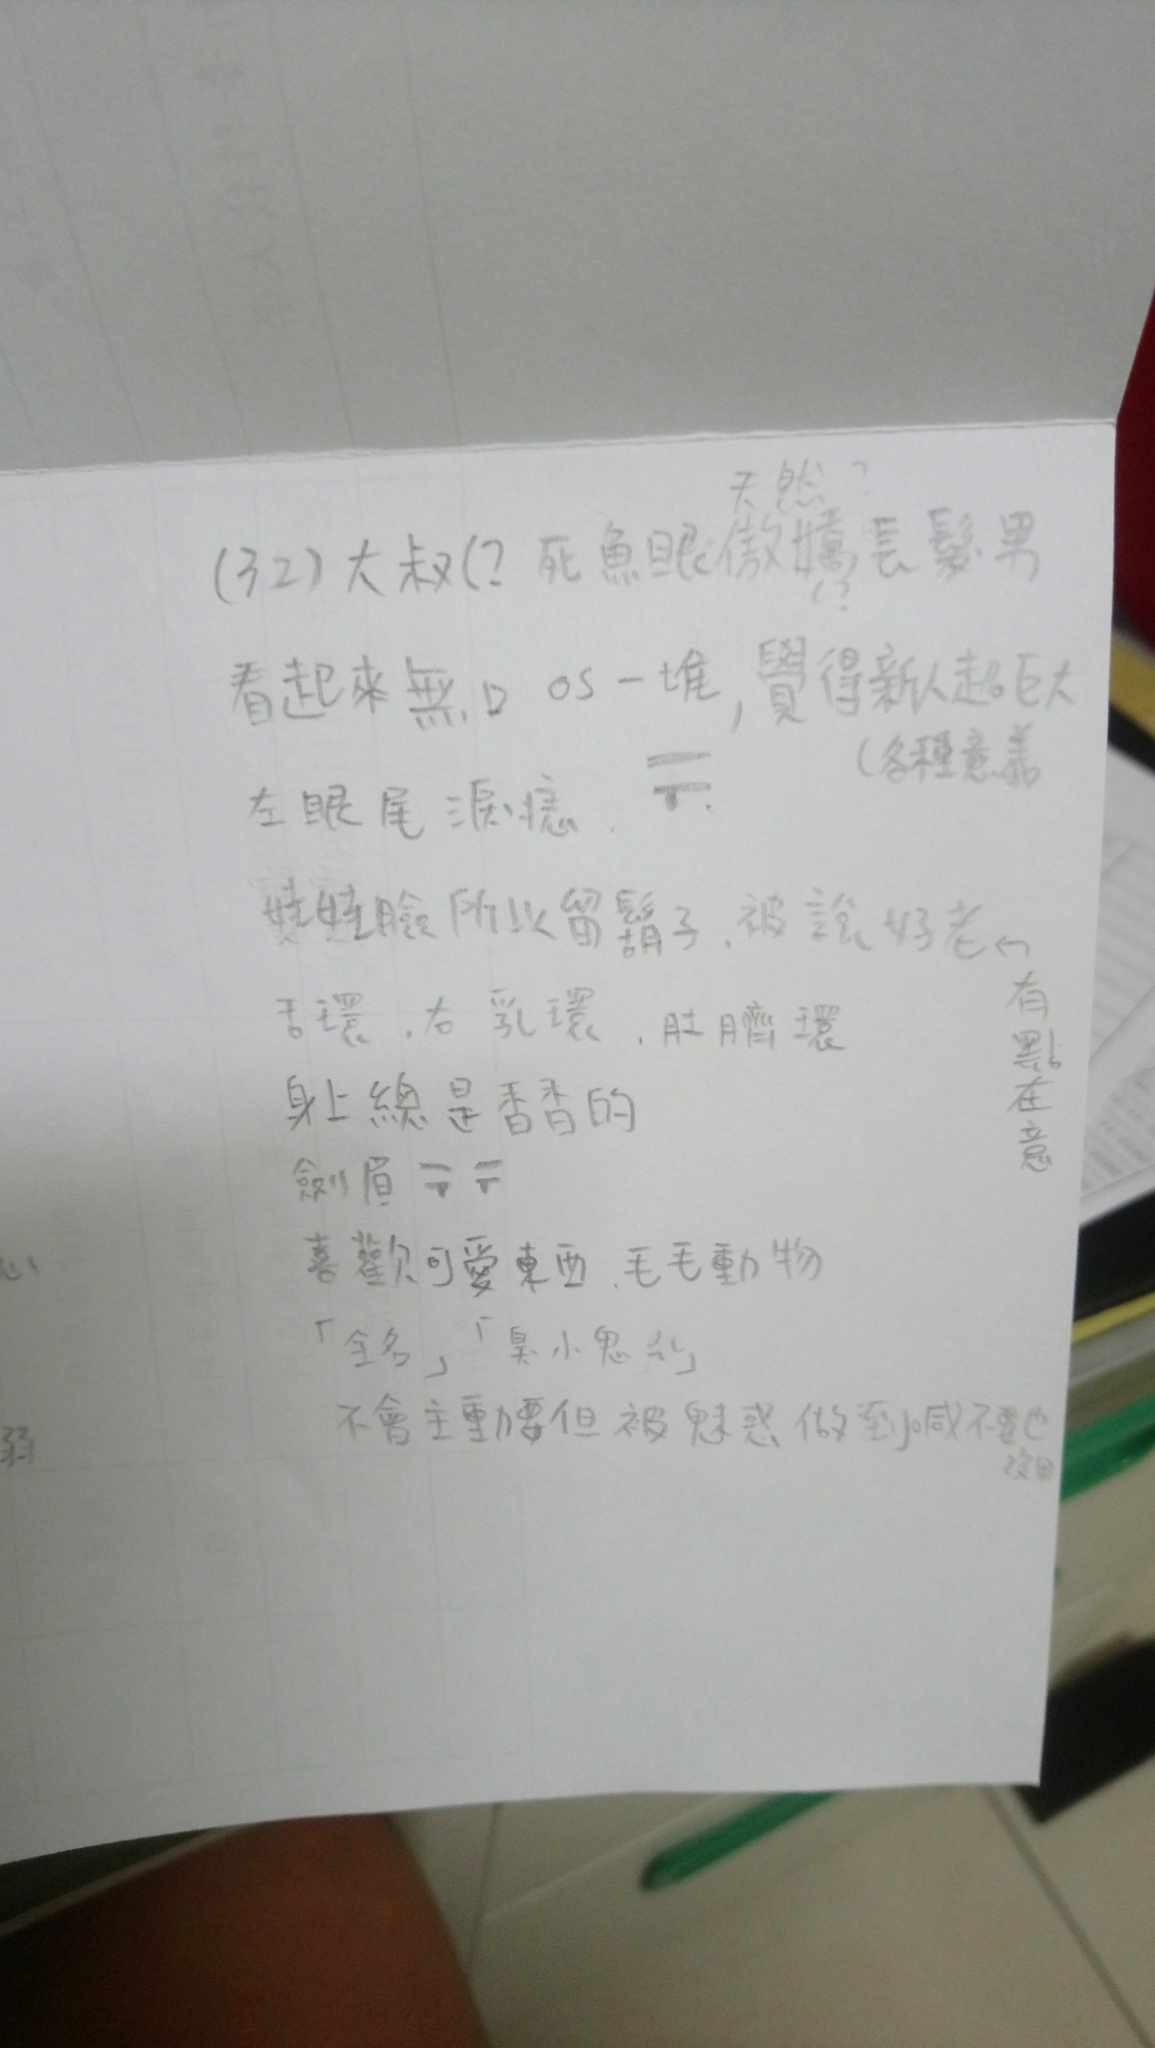 天然?
(32)大叔(? 死魚眼傲嬌長髮男
(?
看起來無口 OS一堆,覺得新人超巨大
(各種意義
左眼尾淚痣.
娃娃臉所以留鬍子.被說好老←
有點在意
舌環.右乳環.肚臍環
身上總是香香的
劍眉
喜歡可愛東西.毛毛動物
「全名」「臭小鬼
不會主動要但被魅惑做到喊不要也
沒用
心
弱